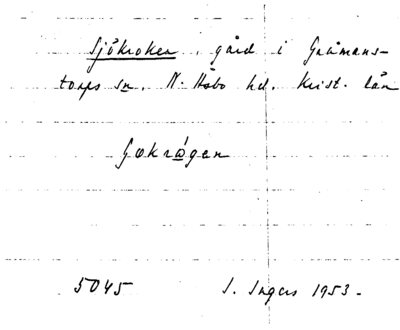 Sjökroken, gård i Gråmans-
torps sn. N. Åsbo hd. Krist. län
Gokrágen
5045 S. Ingers 1953.